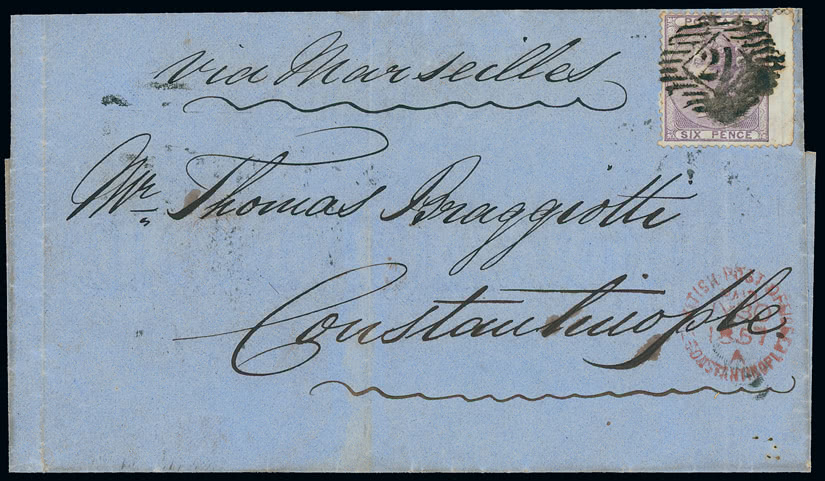 via Marseilles
21
SIX PENCE
Mr. Thomas Braggiotti
Constantinople
BRITISH POST OFFICE
1857
A
CONSTANTINOPLE